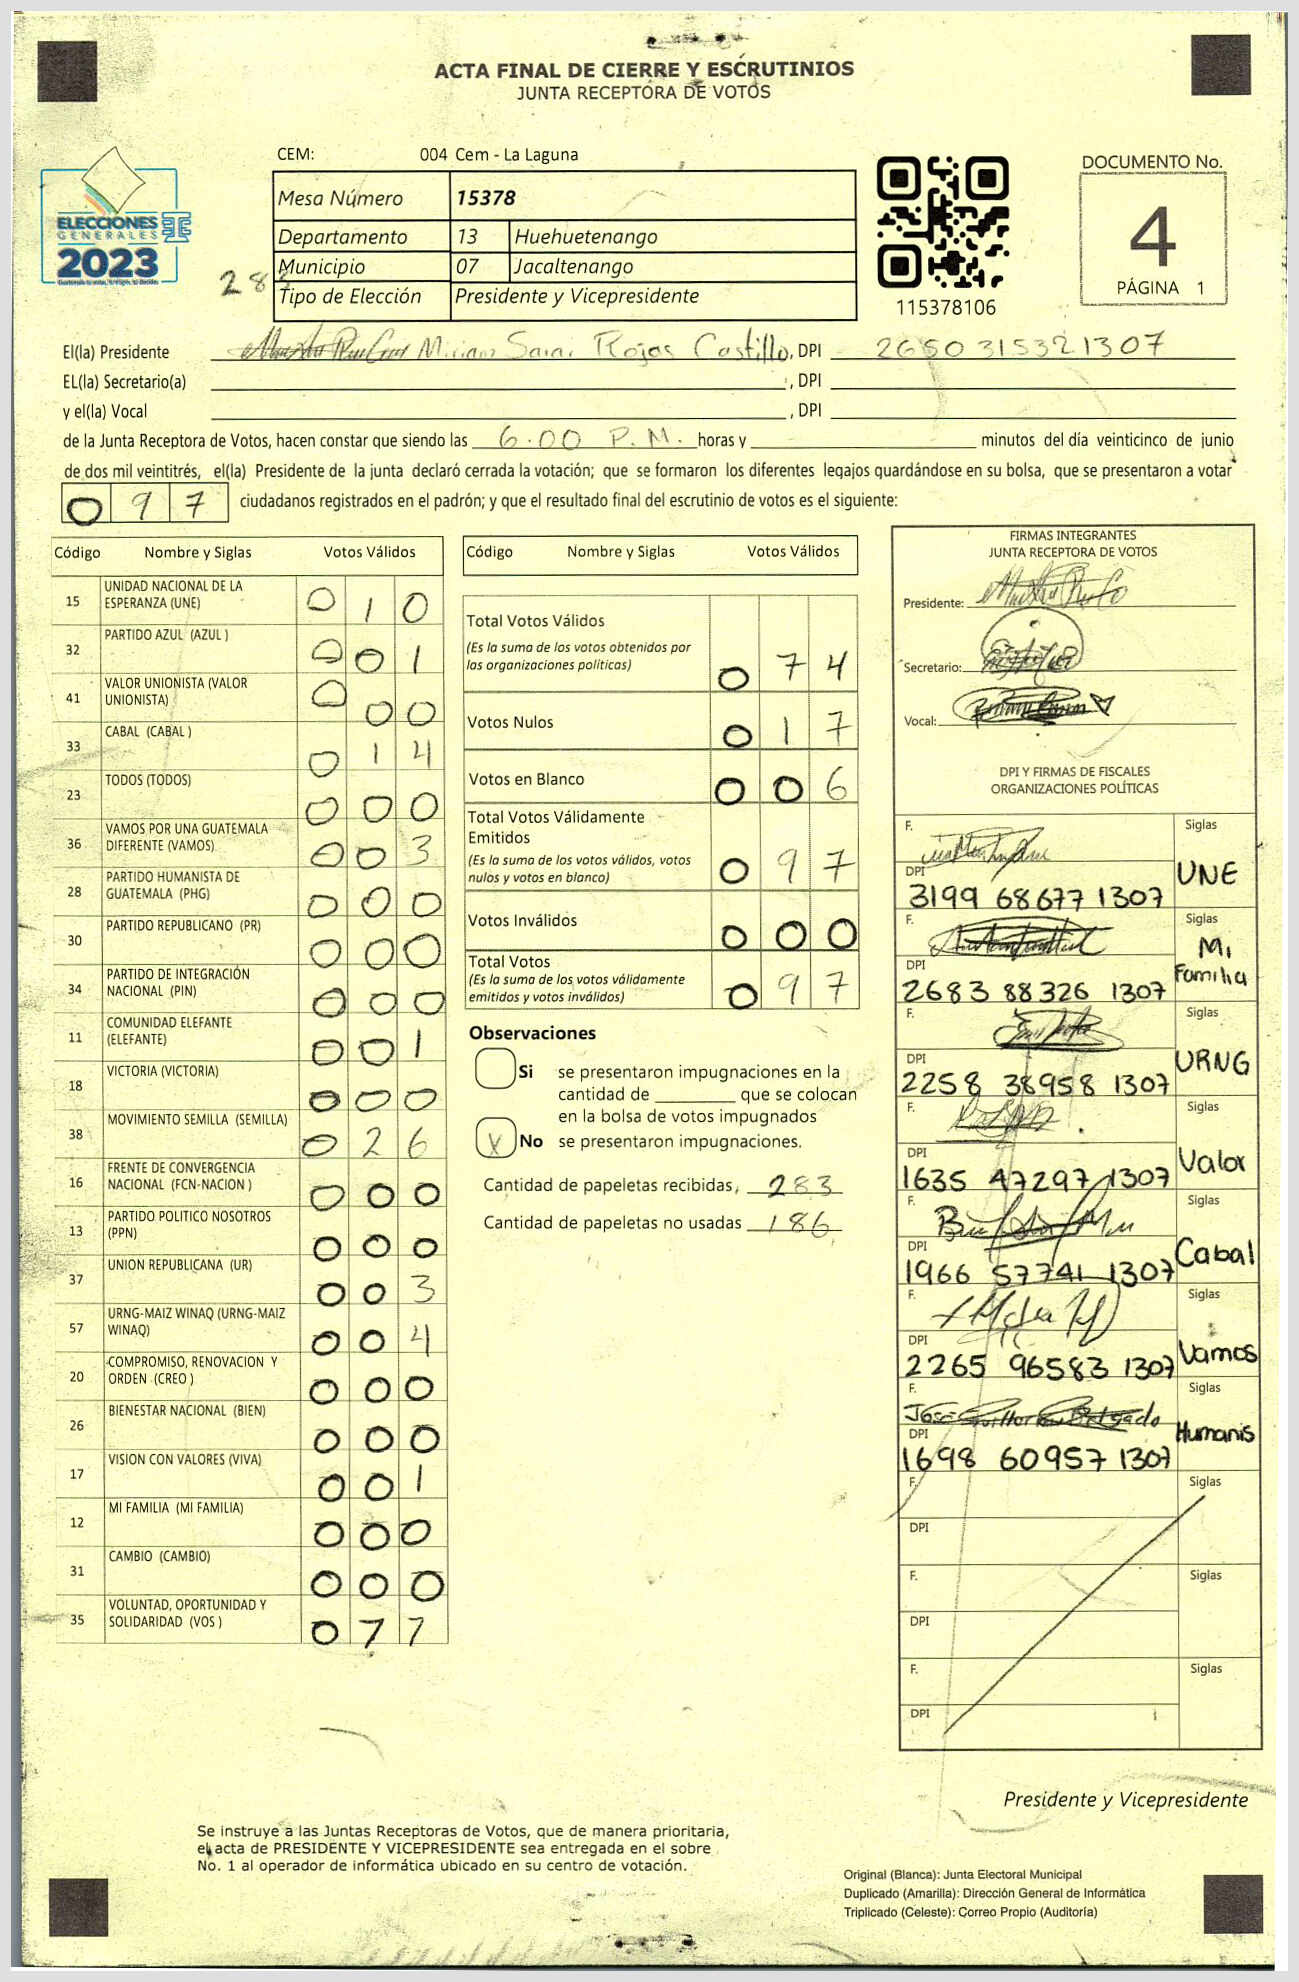 ACTA FINAL DE CIERRE Y ESCRUTINIOS
JUNTA RECEPTORA DE VOTOS
CEM: 004 Cem - La Laguna
DOCUMENTO No.
4
PÁGINA 1
ELECCIONES
GENERALES
2023
Mesa Número 15378
Departamento 13 Huehuetenango
Municipio 07 Jacaltenango
Tipo de Elección Presidente y Vicepresidente
283
115378106
El(la) Presidente Miriam Sarai Rojas Castillo, DPI 2650315321307
EL(la) Secretario(a) , DPI
y el(la) Vocal , DPI
de la Junta Receptora de Votos, hacen constar que siendo las 6:00 P.M. horas y minutos del día veinticinco de junio
de dos mil veintitrés, el(la) Presidente de la junta declaró cerrada la votación; que se formaron los diferentes legajos quardándose en su bolsa, que se presentaron a votar
097 ciudadanos registrados en el padrón; y que el resultado final del escrutinio de votos es el siguiente:
Código Nombre y Siglas Votos Válidos
15 UNIDAD NACIONAL DE LA ESPERANZA (UNE) 0 1 0
32 PARTIDO AZUL (AZUL ) 0 0 1
41 VALOR UNIONISTA (VALOR UNIONISTA) 0 0 0
33 CABAL (CABAL ) 0 1 4
23 TODOS (TODOS) 0 0 0
36 VAMOS POR UNA GUATEMALA DIFERENTE (VAMOS) 0 0 3
28 PARTIDO HUMANISTA DE GUATEMALA (PHG) 0 0 0
30 PARTIDO REPUBLICANO (PR) 0 0 0
34 PARTIDO DE INTEGRACIÓN NACIONAL (PIN) 0 0 0
11 COMUNIDAD ELEFANTE (ELEFANTE) 0 0 1
18 VICTORIA (VICTORIA) 0 0 0
38 MOVIMIENTO SEMILLA (SEMILLA) 0 2 6
16 FRENTE DE CONVERGENCIA NACIONAL (FCN-NACION ) 0 0 0
13 PARTIDO POLITICO NOSOTROS (PPN) 0 0 0
37 UNION REPUBLICANA (UR) 0 0 3
57 URNG-MAIZ WINAQ (URNG-MAIZ WINAQ) 0 0 4
20 COMPROMISO, RENOVACION Y ORDEN (CREO ) 0 0 0
26 BIENESTAR NACIONAL (BIEN) 0 0 0
17 VISION CON VALORES (VIVA) 0 0 1
12 MI FAMILIA (MI FAMILIA) 0 0 0
31 CAMBIO (CAMBIO) 0 0 0
35 VOLUNTAD, OPORTUNIDAD Y SOLIDARIDAD (VOS ) 0 7 7
Código Nombre y Siglas Votos Válidos
Total Votos Válidos 0 7 4
(Es la suma de los votos obtenidos por
las organizaciones politicas)
Votos Nulos 0 1 7
Votos en Blanco 0 0 6
Total Votos Válidamente
Emitidos 0 9 7
(Es la suma de los votos válidos, votos
nulos y votos en blanco)
Votos Inválidos 0 0 0
Total Votos 0 9 7
(Es la suma de los votos válidamente
emitidos y votos inválidos)
Observaciones
Si se presentaron impugnaciones en la
cantidad de que se colocan
en la bolsa de votos impugnados
X No se presentaron impugnaciones.
Cantidad de papeletas recibidas, 283
Cantidad de papeletas no usadas 186
FIRMAS INTEGRANTES
JUNTA RECEPTORA DE VOTOS
Presidente:
Secretario:
Vocal:
DPI Y FIRMAS DE FISCALES
ORGANIZACIONES POLÍTICAS
F. Siglas
DPI UNE
3199 68677 1307
F. Siglas
DPI Mi Familia
2683 88326 1307
F. Siglas
DPI URNG
2258 38958 1307
F. Siglas
DPI Valor
1635 47297 1307
F. Siglas
DPI Cabal
1966 57741 1307
F. Siglas
DPI Vamos
2265 96583 1307
F. Siglas
José Delgado
DPI Humanis
1698 60957 1307
F. Siglas
DPI
F. Siglas
DPI
F. Siglas
DPI
Presidente y Vicepresidente
Se instruye a las Juntas Receptoras de Votos, que de manera prioritaria,
el acta de PRESIDENTE Y VICEPRESIDENTE sea entregada en el sobre
No. 1 al operador de informática ubicado en su centro de votación.
Original (Blanca): Junta Electoral Municipal
Duplicado (Amarilla): Dirección General de Informática
Triplicado (Celeste): Correo Propio (Auditoría)